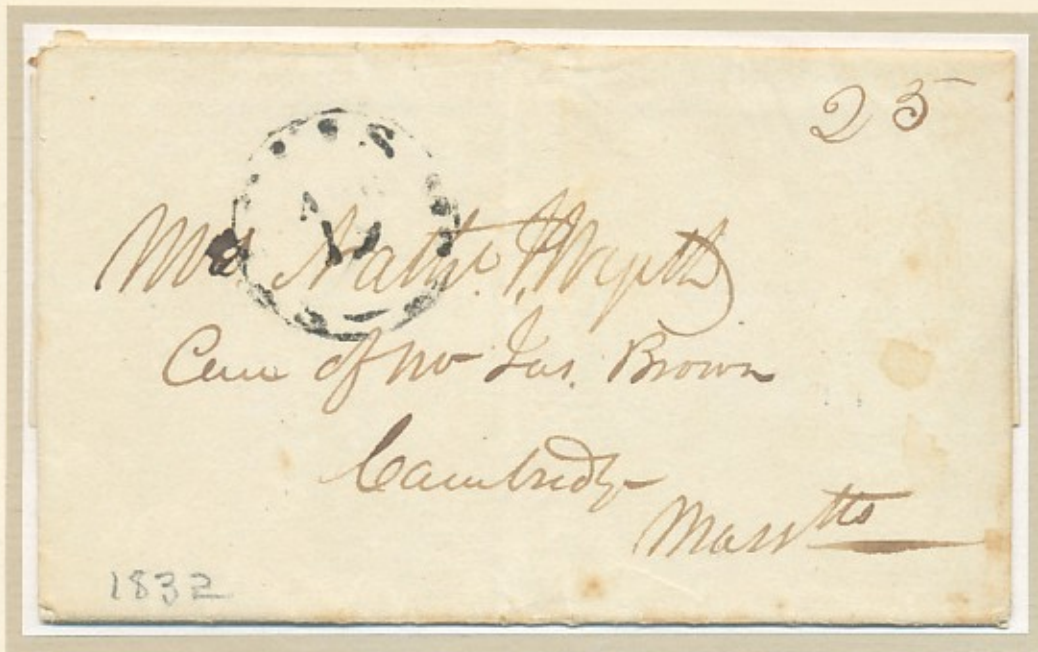 25
Mrs Nathl. J. Wyeth
Care of Mr Jas. Brown
Cambridge
Masstts
1832